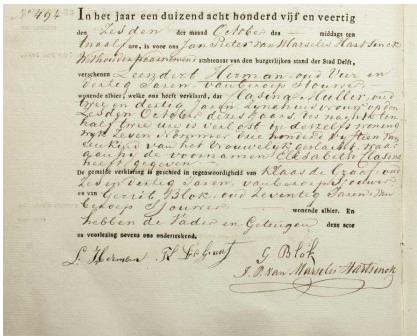 494
In het jaar een duizend acht honderd vijf en veertig
den Zesden der maand October des — middags ten
twaalf ure, is voor ons Jan Pieter van Marselis Hartsinck
Wethouder ambtenaar van den burgerlijken stand der Stad Delft,
verschenen Leendert Herman oud Vier en
Veertig Jaren van beroep Sjouwer
wonende alhier, welke ons heeft verklaard, dat Clasina Muller, oud
twee en dertig Jaren, zijne huisvrouw op den
Zesden October dezes Jaars, des nachts ten
half twee ure is verlost in derzelfs woning
Wyk Zeven Nommer twee honderd Vyftien van
een kind van het Vrouwelyk geslacht, waar
aan hij de voornamen Elisabeth Clasina
heeft gegeven
De gemelde verklaring is geschied in tegenwoordigheid van Klaas de Graaf, oud
Zes en Veertig Jaren, van beroep Sjouwer
en van Gerrit Blok, oud Zeventig Jaren van
beroep Sjouwer
wonende alhier. En
hebben de Vader en Getuigen deze acte
na voorlezing nevens ons onderteekend.
L. Herman K de Graaf G Blok
J. P. van Marselis Hartsinck